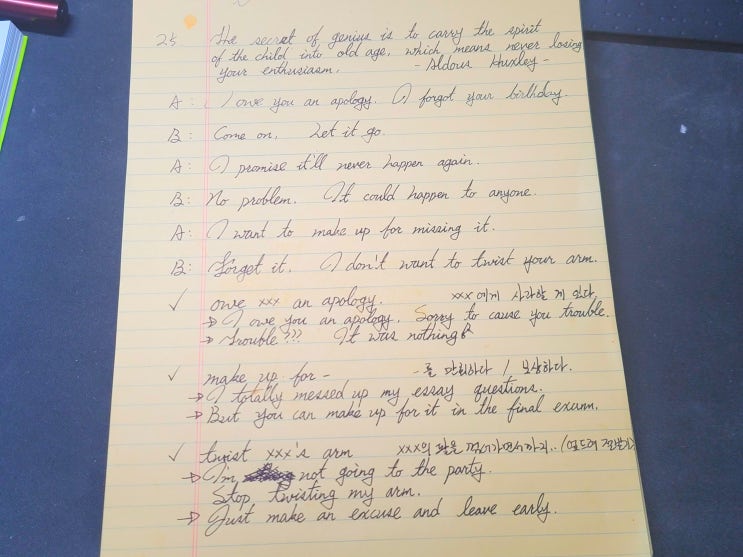 25 The secret of genius is to carry the spirit
of the child into old age, which means never losing
your enthusiasm. - Aldous Huxley -
A: I owe you an apology. I forgot your birthday.
B: Come on. Let it go.
A: I promise it'll never happen again.
B: No problem. It could happen to anyone.
A: I want to make up for missing it.
B: Forget it. I don't want to twist your arm.
✓ owe xxx an apology. xxx에게 사과할 게 있다.
→ I owe you an apology. Sorry to cause you trouble.
→ Trouble??? It was nothing
✓ make up for - -를 만회하다 / 보상하다.
→ I totally messed up my essay questions.
→ But you can make up for it in the final exam.
✓ twist xxx's arm xxx의 팔을 꺾어가면서까지..
→ I'm not going to the party.
Stop twisting my arm.
→ Just make an excuse and leave early.